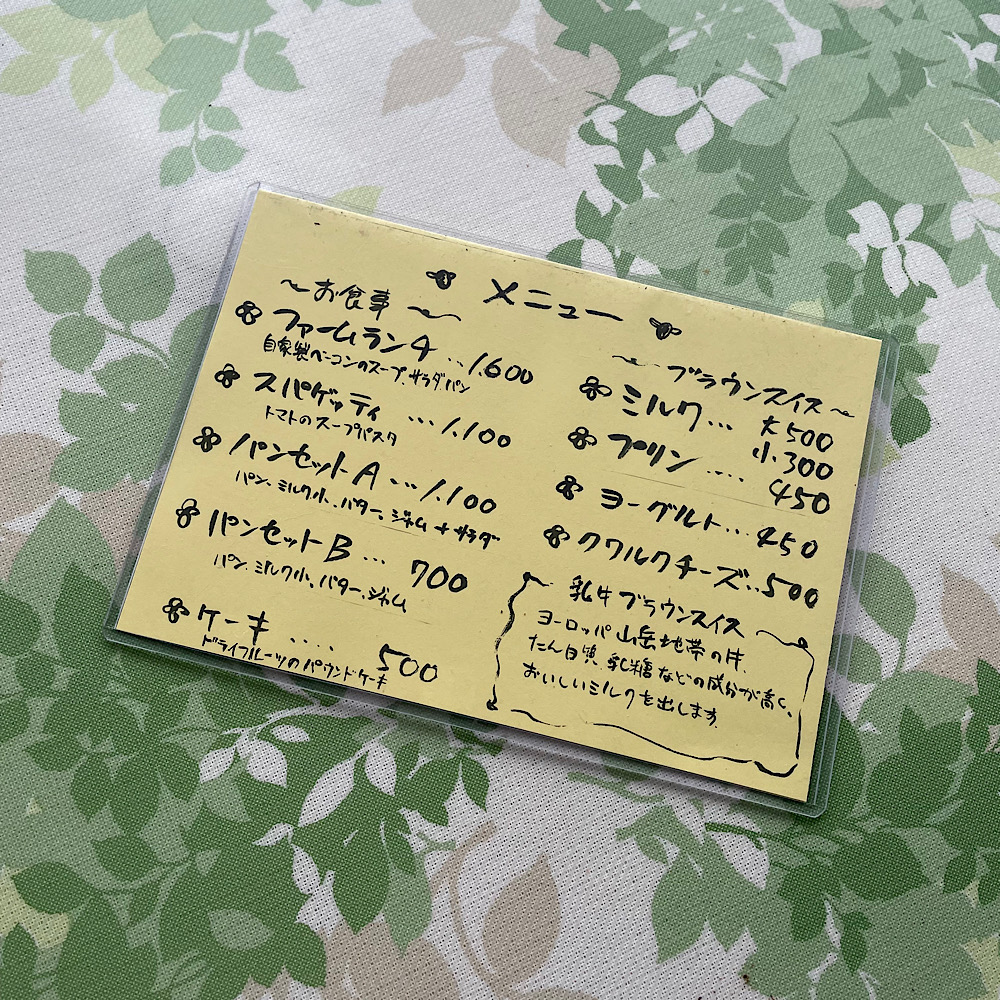 メニュー
〜お食事〜
ファームランチ...1.600
自家製ベーコンのスープ、サラダパン
スパゲッティ...1.100
トマトのスープパスタ
パンセットA...1.100
パン、ミルク小、バター、ジャム+サラダ
パンセットB...700
パン、ミルク小、バター、ジャム
ケーキ....500
ドライフルーツのパウンドケーキ
〜ブラウンスイス〜
ミルク...大500
小300
プリン...450
ヨーグルト...450
クワルクチーズ..500
乳牛ブラウンスイス
ヨーロッパ山岳地帯の牛。
たん白質、乳糖などの成分が高く、
おいしいミルクを出します。